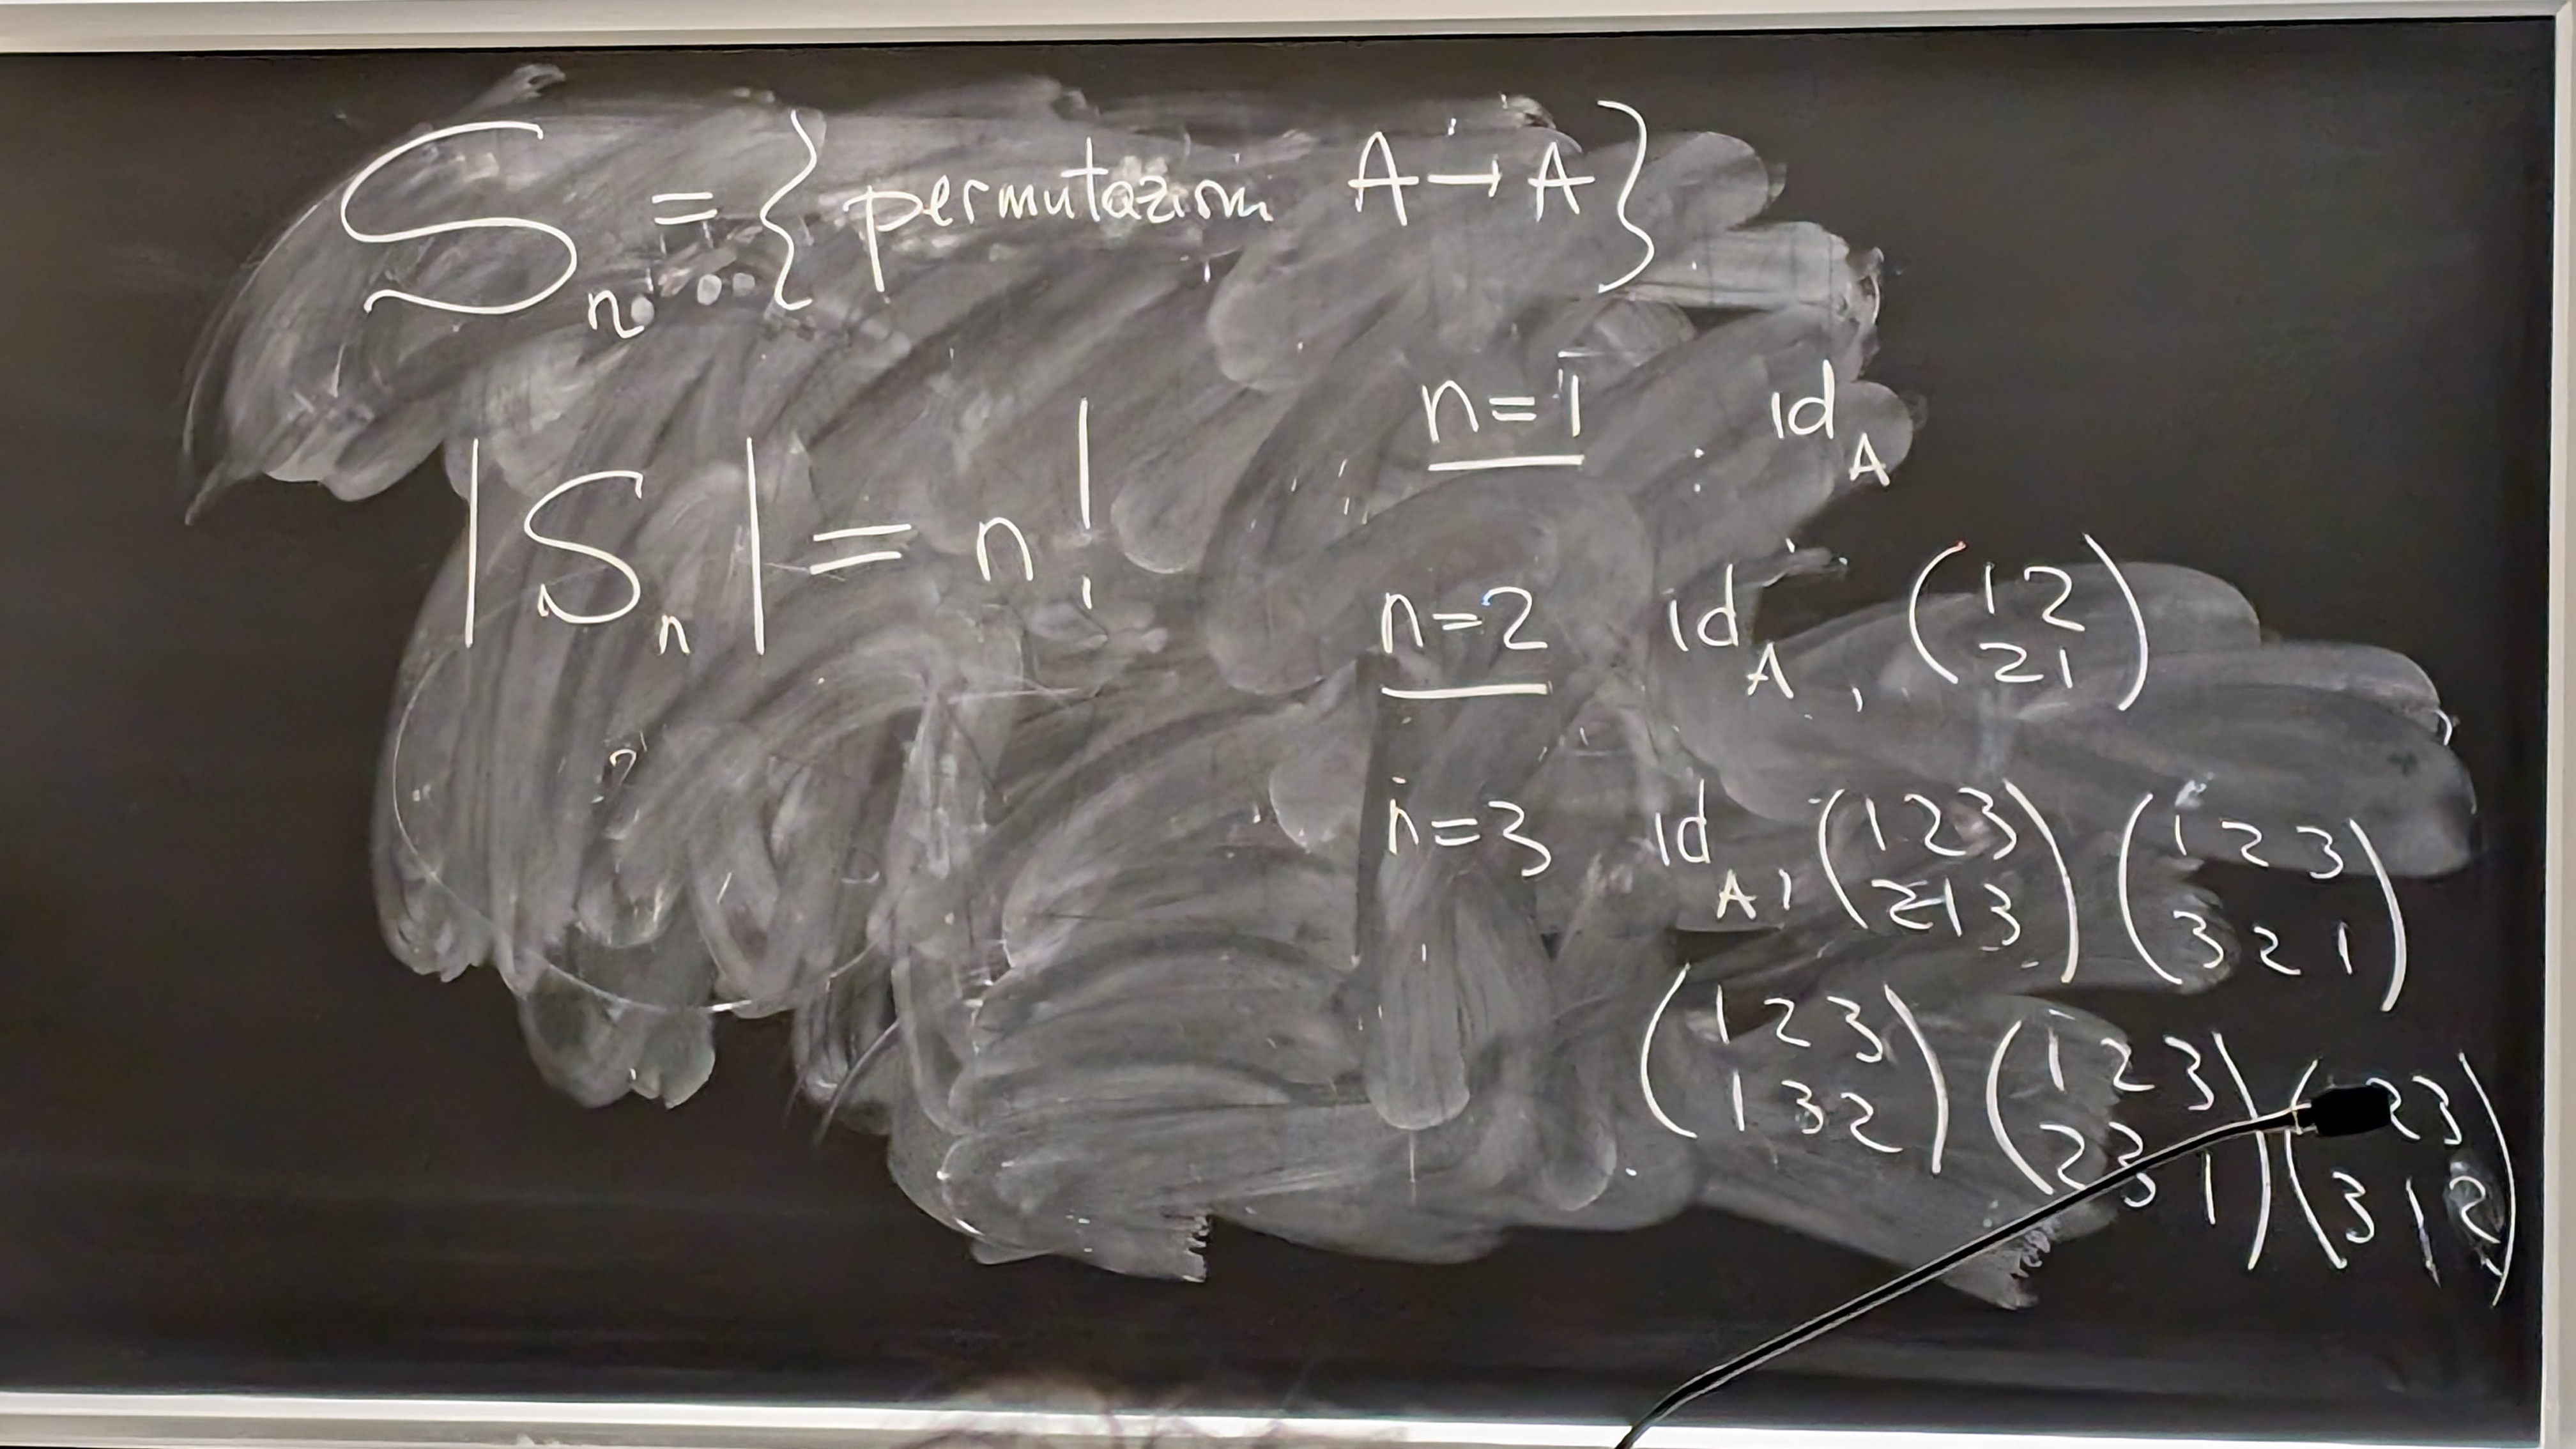 Sₙ = { permutazioni A → A }
|Sₙ| = n!
n=1 id_A
n=2 id_A, (1 2
2 1)
n=3 id_A, (1 2 3 (1 2 3
2 1 3) 3 2 1)
(1 2 3 (1 2 3 ( 2 3
1 3 2) 2 3 1) 3 1 2)